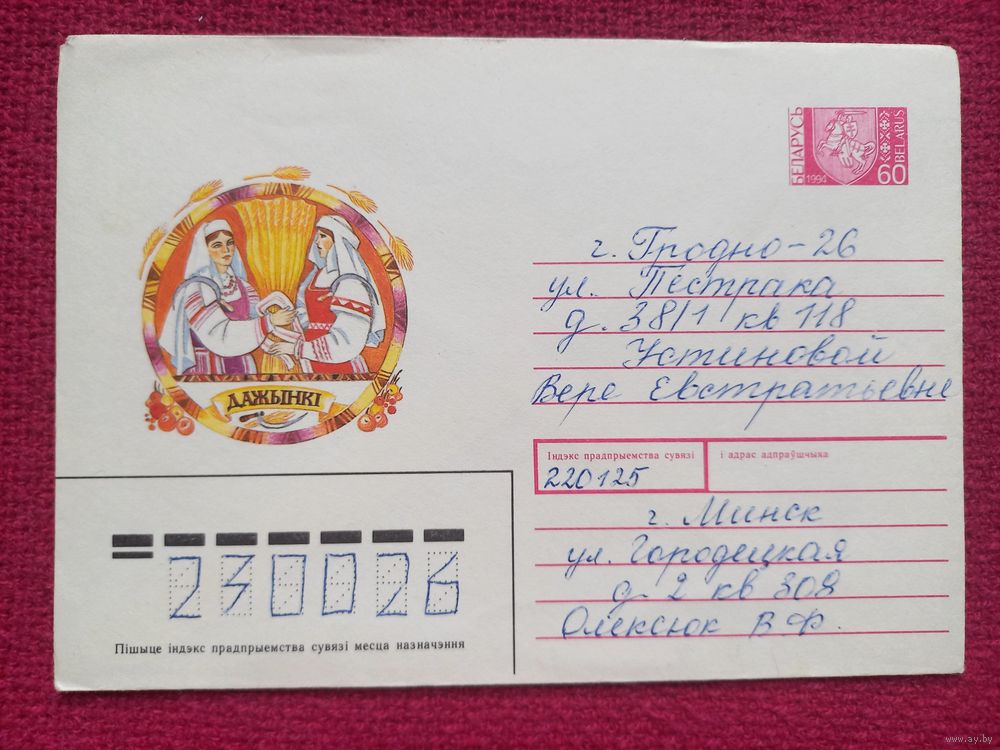 БЕЛАРУСЬ
1994
60
BELARUS
г. Гродно-26
ул. Пестрака
д. 38/1 кв 118
Устиновой
Вере Евстратьевне
ДАЖЫНКІ
Індэкс прадпрыемства сувязі
і адрас адпраўшчыка
220125
г. Минск
ул. Городецкая
д. 2 кв 308
Олексюк В.Ф.
230026
Пішыце індэкс прадпрыемства сувязі месца назначэння
www.ay.by